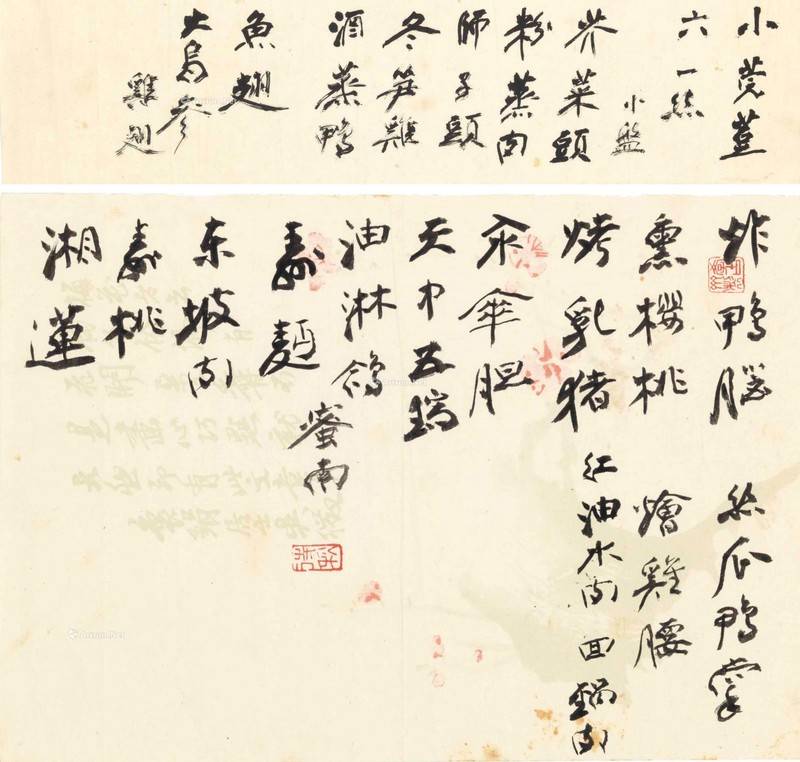 小莞荳
六一絲
小盤
芥菜頭
粉蒸肉
師子頭
冬笋雞
酒蒸鴨
魚翅
大烏參
雞翅
炸鴨腦 絲瓜鴨掌
熏櫻桃 燴雞腰
烤乳猪 紅油水肉 回鍋肉
汆傘胆
天中五瑞
油淋鴿
蜜南
壽麵
东坡肉
壽桃
湘蓮
Artron.Net